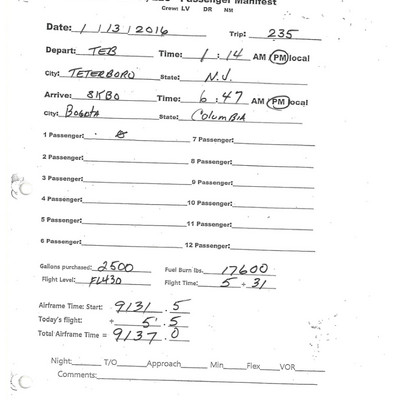 Passenger Manifest
Crew: LV DR NM
Date: 1 / 13 / 2016 Trip: 235
Depart: TEB Time: 1 : 14 AM PM local
City: TETERBORO State: N.J.
Arrive: SKBO Time: 6 : 47 AM PM local
City: BOGOTA State: COLUMBIA
1 Passenger: 7 Passenger:
2 Passenger: 8 Passenger:
3 Passenger: 9 Passenger:
4 Passenger: 10 Passenger:
5 Passenger: 11 Passenger:
6 Passenger: 12 Passenger:
Gallons purchased: 2500 Fuel Burn lbs. 17600
Flight Level: FL430 Flight Time: 5 + 31
Airframe Time: Start: 9131 . 5
Today's flight: + 5 . 5
Total Airframe Time = 9137 . 0
Night: T/O Approach Min Flex VOR
Comments: